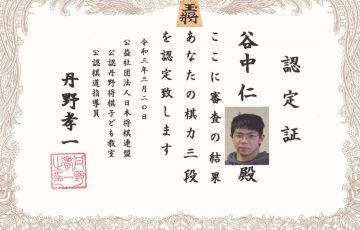 王将
認定証
谷中仁殿
ここに審査の結果
あなたの棋力三段
を認定致します
令和三年三月二〇日
公益社団法人日本将棋連盟
公認丹野将棋子ども教室
公認棋道指導員
丹野孝一